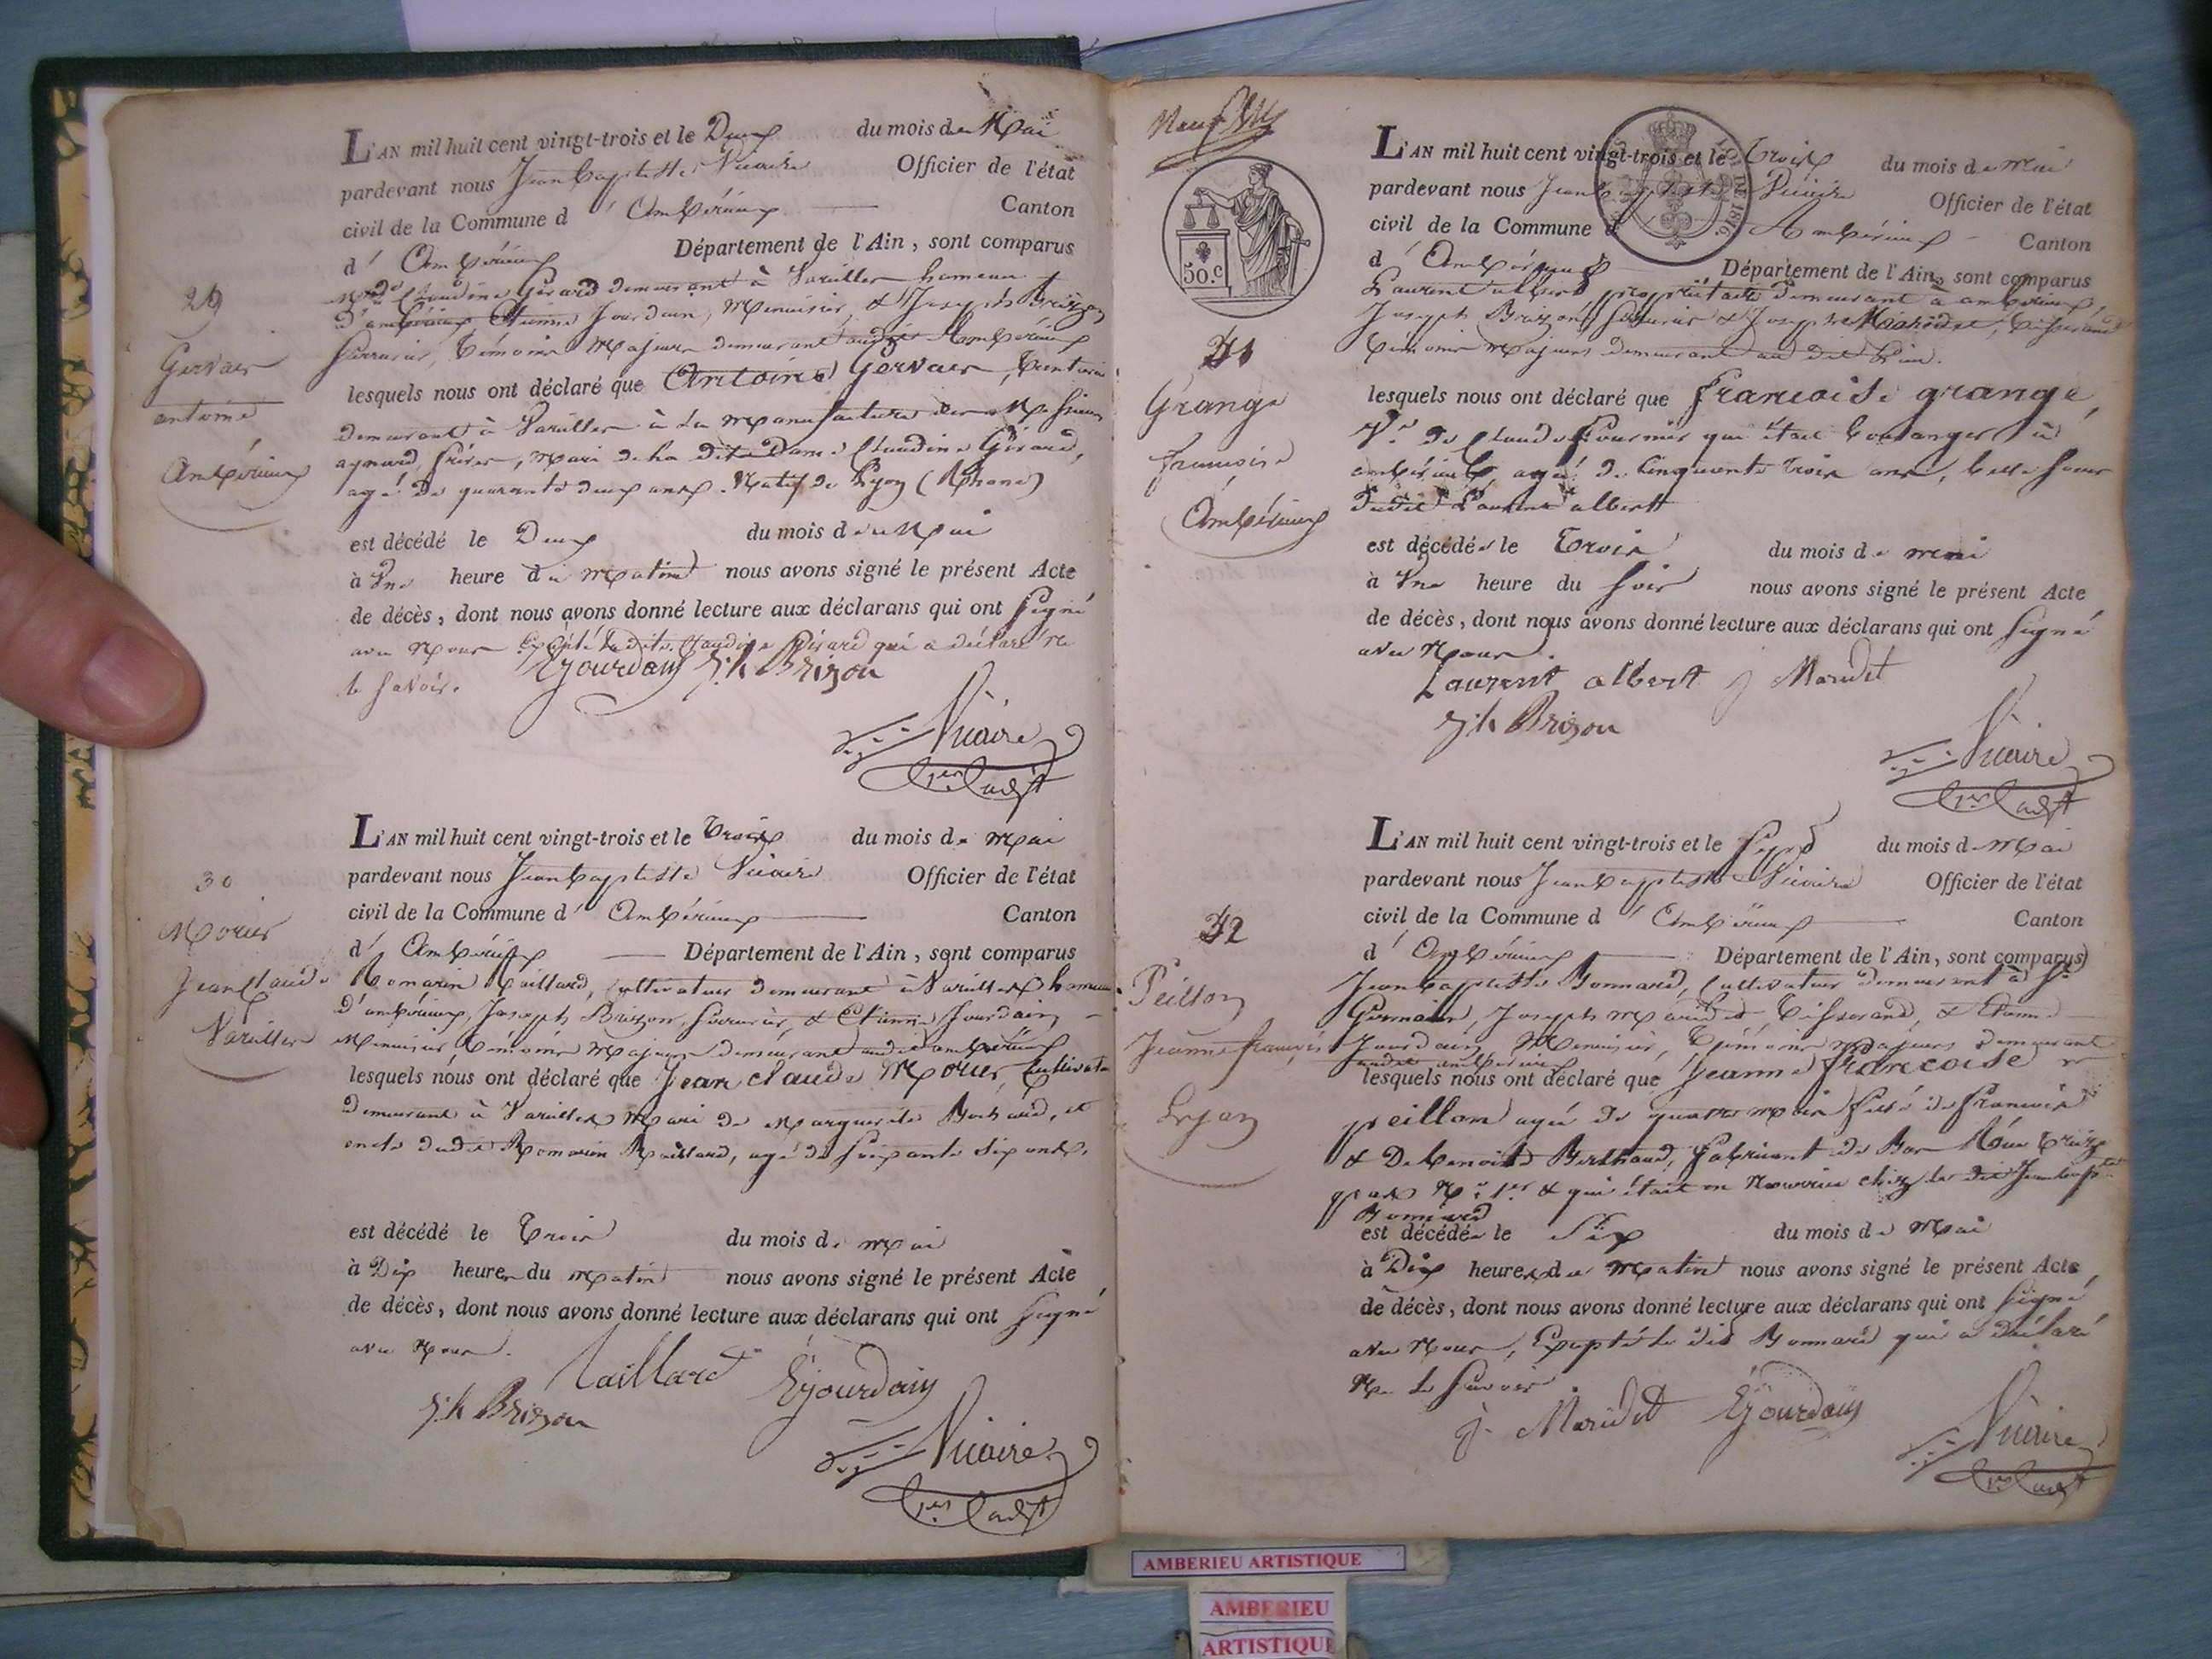 29
Gervais
antoine
Ambérieux
L'AN mil huit cent vingt-trois et le Deux du mois de Mai
pardevant nous Jean Baptiste Vicaire Officier de l'état
civil de la Commune d' Ambérieux Canton
d' Ambérieux Département de l'Ain, sont comparus
Claudine Gérard demeurant à Vareilles hameau
d'ambérieux Etienne Jourdain, Menuisier, & Joseph Brizon
Serrurier, témoins Majeurs demeurant audit Ambérieux
lesquels nous ont déclaré que Antoine Gervais, teinturier
demeurant à Vareilles à la Manufacture des Messieurs
aynard frères, mari de la dite Dame Claudine Gérard,
agé de quarante deux ans. Natif de Lyon (Rhone)
est décédé le Deux du mois de Mai
à Une heure du matin nous avons signé le présent Acte
de décès, dont nous avons donné lecture aux déclarans qui ont signé
avec Nous Excepté la dite Claudine Gérard qui a déclaré ne
le Savoir.
E Jourdain J.h Brizon
Vicaire
30
Morier
Jean Claude
Vareilles
L'AN mil huit cent vingt-trois et le trois du mois de Mai
pardevant nous Jean Baptiste Vicaire Officier de l'état
civil de la Commune d' Ambérieux Canton
d' Ambérieux Département de l'Ain, sont comparus
Romarin Caillard, Cultivateur demeurant à Vareilles hameau
d'ambérieux, Joseph Brizon, Serrurier, & Etienne Jourdain
Menuisier, témoins Majeurs demeurant audit ambérieux
lesquels nous ont déclaré que Jean Claude Morier, Cultivateur
demeurant à Vareilles Mari de Marguerite Bochard, et
oncle dudit Romarin agé de soixante dix ans.
est décédé le trois du mois de Mai
à Dix heures du Matin nous avons signé le présent Acte
de décès, dont nous avons donné lecture aux déclarans qui ont signé
avec Nous.
Caillard E Jourdain
J.h Brizon
Vicaire
50.c
DE 1816.
31
Grange
françoise
Ambérieux
L'AN mil huit cent vingt-trois et le trois du mois de Mai
pardevant nous Jean Baptiste Vicaire Officier de l'état
civil de la Commune d' Ambérieux Canton
d' Ambérieux Département de l'Ain, sont comparus
Laurent albert propriétaire demeurant à ambérieux,
Joseph Brizon, Serrurier & Joseph Maridet, tisserand
témoins Majeurs demeurant au dit Lieu.
lesquels nous ont déclaré que françoise grange,
V.e de Claude Fournier qui était boulanger à
ambérieux agée de Cinquante trois ans, belle soeur
dudit Laurent albert
est décédée le trois du mois de mai
à Une heure du soir nous avons signé le présent Acte
de décès, dont nous avons donné lecture aux déclarans qui ont signé
avec Nous.
Laurent albert j Maridet
J.h Brizon
Vicaire
32
Peillon
Jeanne françoise
Lyon
L'AN mil huit cent vingt-trois et le Sept du mois de Mai
pardevant nous Jean Baptiste Vicaire Officier de l'état
civil de la Commune d' Ambérieux Canton
d' Ambérieux Département de l'Ain, sont comparus
Jean Baptiste Bonnard, Cultivateur demeurant à St
Germain, Joseph Maridet, tisserand, & Etienne
Jourdain, Menuisier, témoins majeurs demeurant
audit ambérieux
lesquels nous ont déclaré que Jeanne françoise
peillon agée de quatre mois fille de françois
& De benoite Berthaud, fabricant de Bas
N.o 1.er & qui était en Nourrice chez le dit Jean Bapt.te
Bonnard
est décédée le Six du mois de Mai
à Dix heures du Matin nous avons signé le présent Acte
de décès, dont nous avons donné lecture aux déclarans qui ont signé
avec Nous, Excepté le dit Bonnard qui a déclaré
Ne le Savoir.
j. Maridet E Jourdain
Vicaire
AMBERIEU ARTISTIQUE
AMBERIEU
ARTISTIQUE